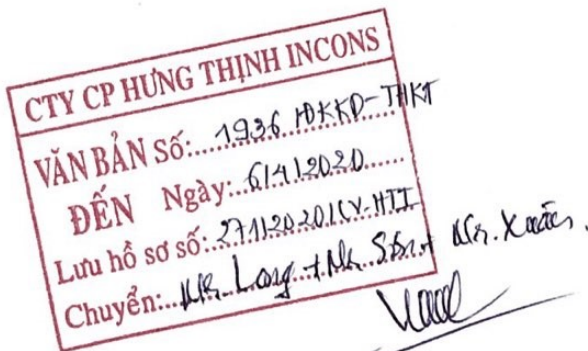 CTY CP HƯNG THỊNH INCONS
VĂN BẢN Số:...1936 HĐKKD-THKT
ĐẾN Ngày:...6/4/2020......
Lưu hồ sơ số:.271/2020/CV-HTI
Chuyển:...Mr. Long + Mr. Sơn + Mr. Xuân.